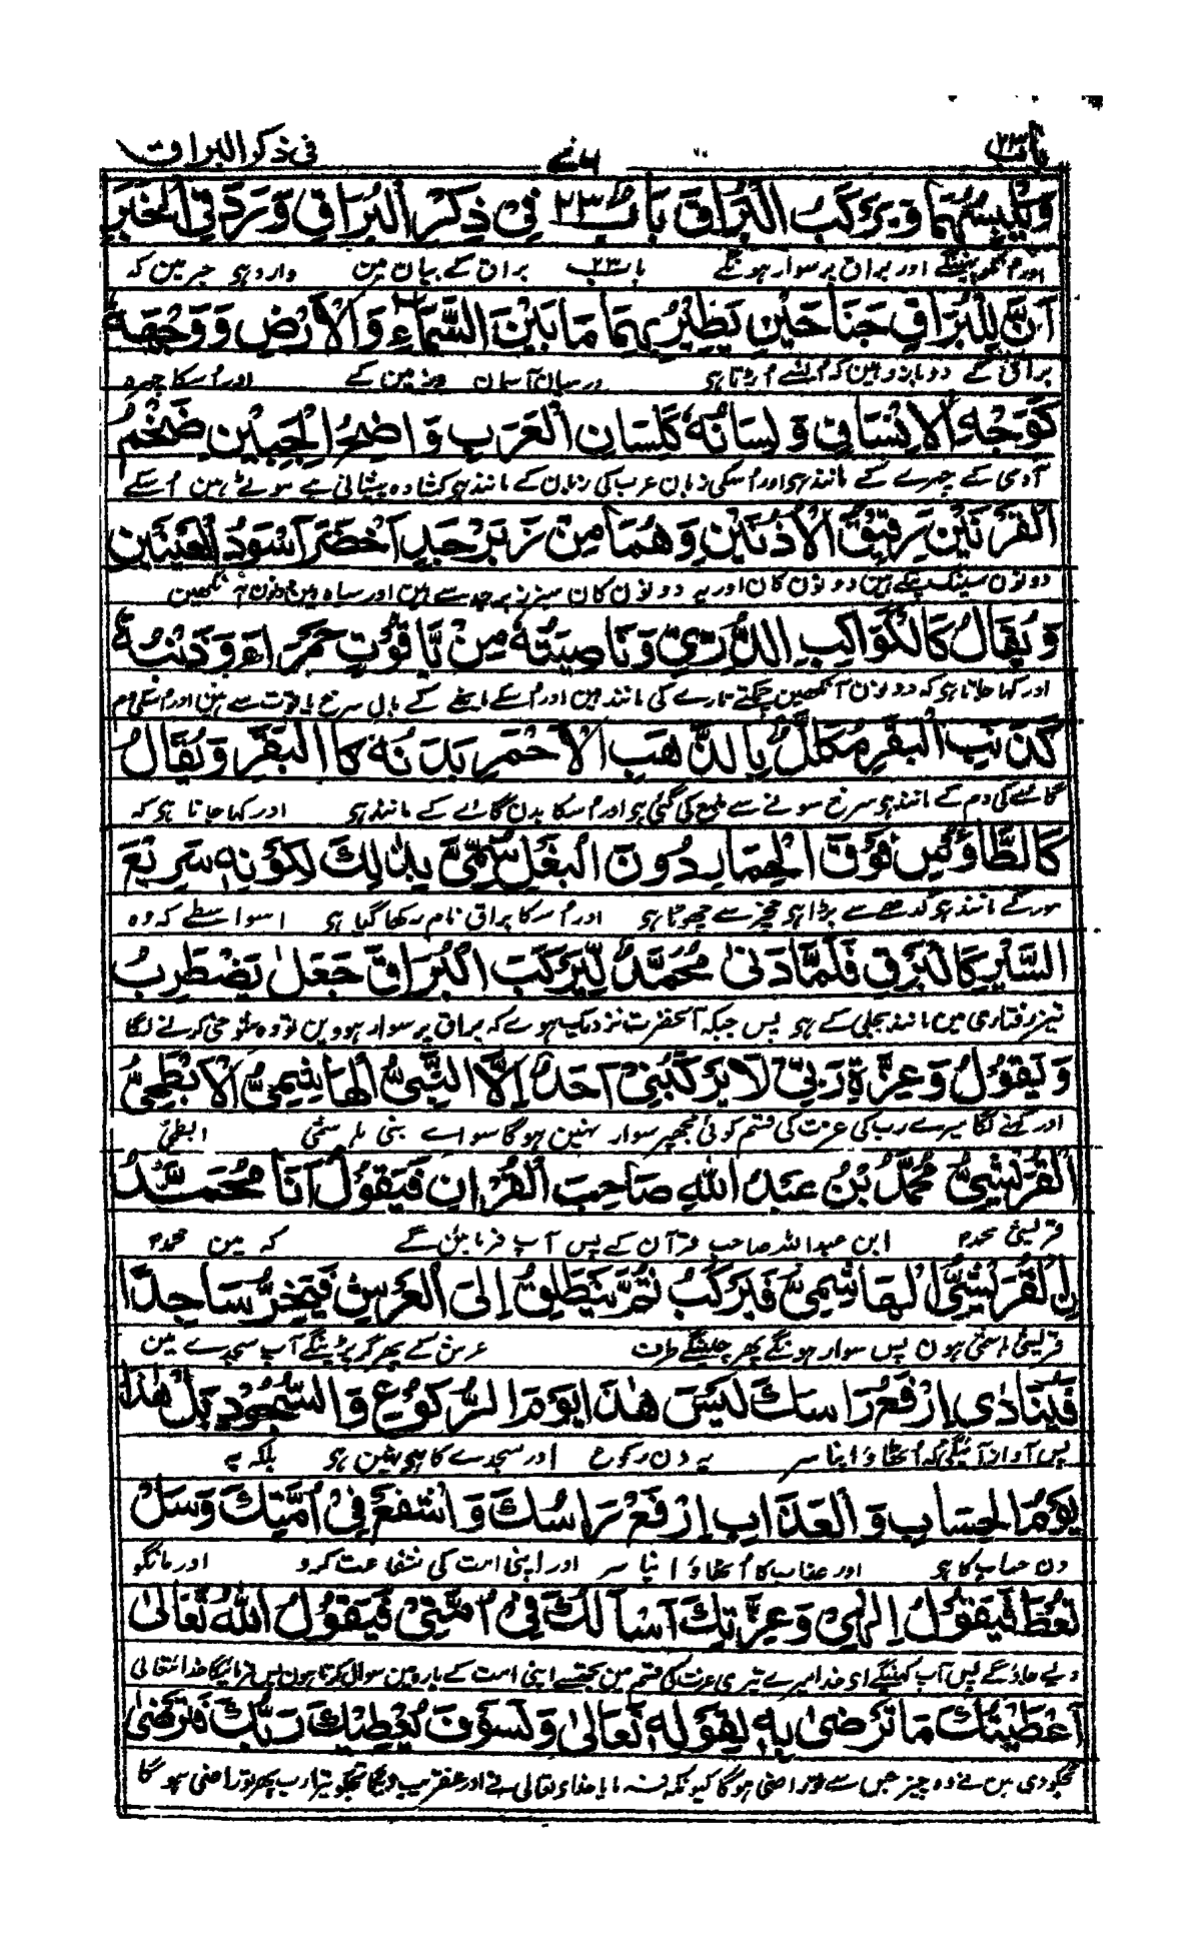 باب ٢٣
٧٦
فی ذکر البراق
وَيَلْبِسُهُمَا وَيَرْكَبُ الْبُرَاقَ بَابٌ ٢٣ فِيْ ذِكْرِ الْبُرَاقِ وَرَدَ فِي الْخَبَرِ
اور پہنینگے اور براق پر سوار ہونگے باب ٢٣ براق کے بیان مین وارد ہی خبر مین کہ
اَنَّ لِلْبُرَاقِ جَنَاحَيْنِ يَطِيْرُ بِهِمَا مَا بَيْنَ السَّمَآءِ وَالْاَرْضِ وَوَجْهُهٗ
براق کے دو بازو ہین کہ اُنسے اُڑتا ہی درمیان آسمان وزمین کے اور اُسکا چہرہ
كَوَجْهِ الْاِنْسَانِ وَلِسَانُهٗ كَلِسَانِ الْعَرَبِ وَاضِحُ الْجَبِيْنِ ضَخْمُ
آدمی کے چہرے کے مانند ہی اور اُسکی زبان عرب کی زبان کے مانند ہی کشادہ پیشانی ہے موٹے ہین اُسکے
الْقَرْنَيْنِ رَقِيْقُ الْاُذُنَيْنِ وَهُمَا مِنْ زَبَرْجَدٍ اَخْضَرَ اَسْوَدُ الْعَيْنَيْنِ
دونون سینگ پتلے ہین دونون کان اور یہ دونون کان سبز زبرجد سے ہین اور سیاہ ہین دونون آنکھین
وَيُقَالُ كَالْكَوَاكِبِ الدُّرِّيِّ وَنَاصِيَتُهٗ مِنْ يَّاقُوْتٍ حَمْرَاءَ وَذَنَبُهٗ
اور کہا جاتا ہی کہ دونون آنکھین چمکتے تارے کی مانند ہین اور اُسکے ماتھے کے بال سرخ یاقوت سے ہین اور اُسکی دم
كَذَنَبِ الْبَقَرِ مُكَلَّلٌ بِالذَّهَبِ الْاَحْمَرِ بَدَنُهٗ كَالْبَقَرِ وَيُقَالُ
گائے کی دم کے مانند ہی سرخ سونے سے ملمع کی گئی ہی اور اُسکا بدن گائے کے مانند ہی اور کہا جاتا ہی کہ
كَالطَّاؤُسِ فَوْقَ الْحِمَارِ دُوْنَ الْبَغْلِ سُمِّيَ بِذٰلِكَ لِكَوْنِهٖ سَرِيْعَ
مور کے مانند ہی گدھے سے بڑا ہی خچر سے چھوٹا ہی اور اُسکا براق نام رکھا گیا ہی اسواسطے کہ وہ
السَّيْرِ كَالْبَرْقِ فَلَمَّا دَنٰى مُحَمَّدٌ لِّيَرْكَبَ الْبُرَاقَ جَعَلَ يَضْطَرِبُ
تیز رفتاری مین مانند بجلی کے ہی پس جبکہ آنحضرت نزدیک ہوے کہ براق پر سوار ہووین تو وہ شوخی کرنے لگا
وَيَقُوْلُ وَعِزَّةِ رَبِّيْ لَا يَرْكَبُنِيْ اَحَدٌ اِلَّا النَّبِيُّ الْهَاشِمِيُّ الْاَبْطَحِيُّ
اور کہنے لگا میرے رب کی عزت کی قسم کوئی مجھپر سوار نہین ہوگا سواے نبی ہاشمی ابطحی
الْقُرَيْشِيُّ مُحَمَّدُ بْنُ عَبْدِ اللهِ صَاحِبُ الْقُرْاٰنِ فَيَقُوْلُ اَنَا مُحَمَّدٌ
قریشی محمد ابن عبداللہ صاحب قرآن کے پس آپ فرمائین گے کہ مین محمد
نِ الْقُرَيْشِيُّ الْهَاشِمِيُّ فَيَرْكَبُ ثُمَّ يَنْطَلِقُ اِلَى الْعَرْشِ فَيَخِرُّ سَاجِدًا
قریشی ہاشمی ہون پس سوار ہونگے پھر چلینگے طرف عرش کے پھر گر پڑینگے آپ سجدے مین
فَيُنَادٰى اِرْفَعْ رَاسَكَ لَيْسَ هٰذَا يَوْمَ الرُّكُوْعِ وَالسُّجُوْدِ بَلْ هٰذَا
پس آواز آئیگی کہ اُٹھاؤ اپنا سر یہ دن رکوع اور سجدے کا نہین ہی بلکہ یہ
يَوْمُ الْحِسَابِ وَالْعَذَابِ اِرْفَعْ رَاسَكَ وَاشْفَعْ فِيْ اُمَّتِكَ وَسَلْ
دن حساب کا ہی اور عذاب کا اُٹھاؤ اپنا سر اور اپنی امت کی شفاعت کرو اور مانگو
تُعْطَ فَيَقُوْلُ اِلٰهِيْ وَعِزَّتِكَ اَسْاَلُكَ فِيْ اُمَّتِيْ فَيَقُوْلُ اللهُ تَعَالٰى
دیے جاؤگے پس آپ کہینگے ای خدا میرے تیری عزت کی قسم مین تجھسے اپنی امت کے بارہ مین سوال کرتا ہون پس فرمائیگا خدا تعالی
اَعْطَيْتُكَ مَا تَرْضٰى بِهٖ لِقَوْلِهٖ تَعَالٰى وَلَسَوْفَ يُعْطِيْكَ رَبُّكَ فَتَرْضٰى
تجکو دی مین نے وہ چیز جس سے تو راضی ہوگا کیونکہ فرمایا خداء تعالی نے اور عنقریب دیگا تجکو تیرا رب پھر تو راضی ہوگا